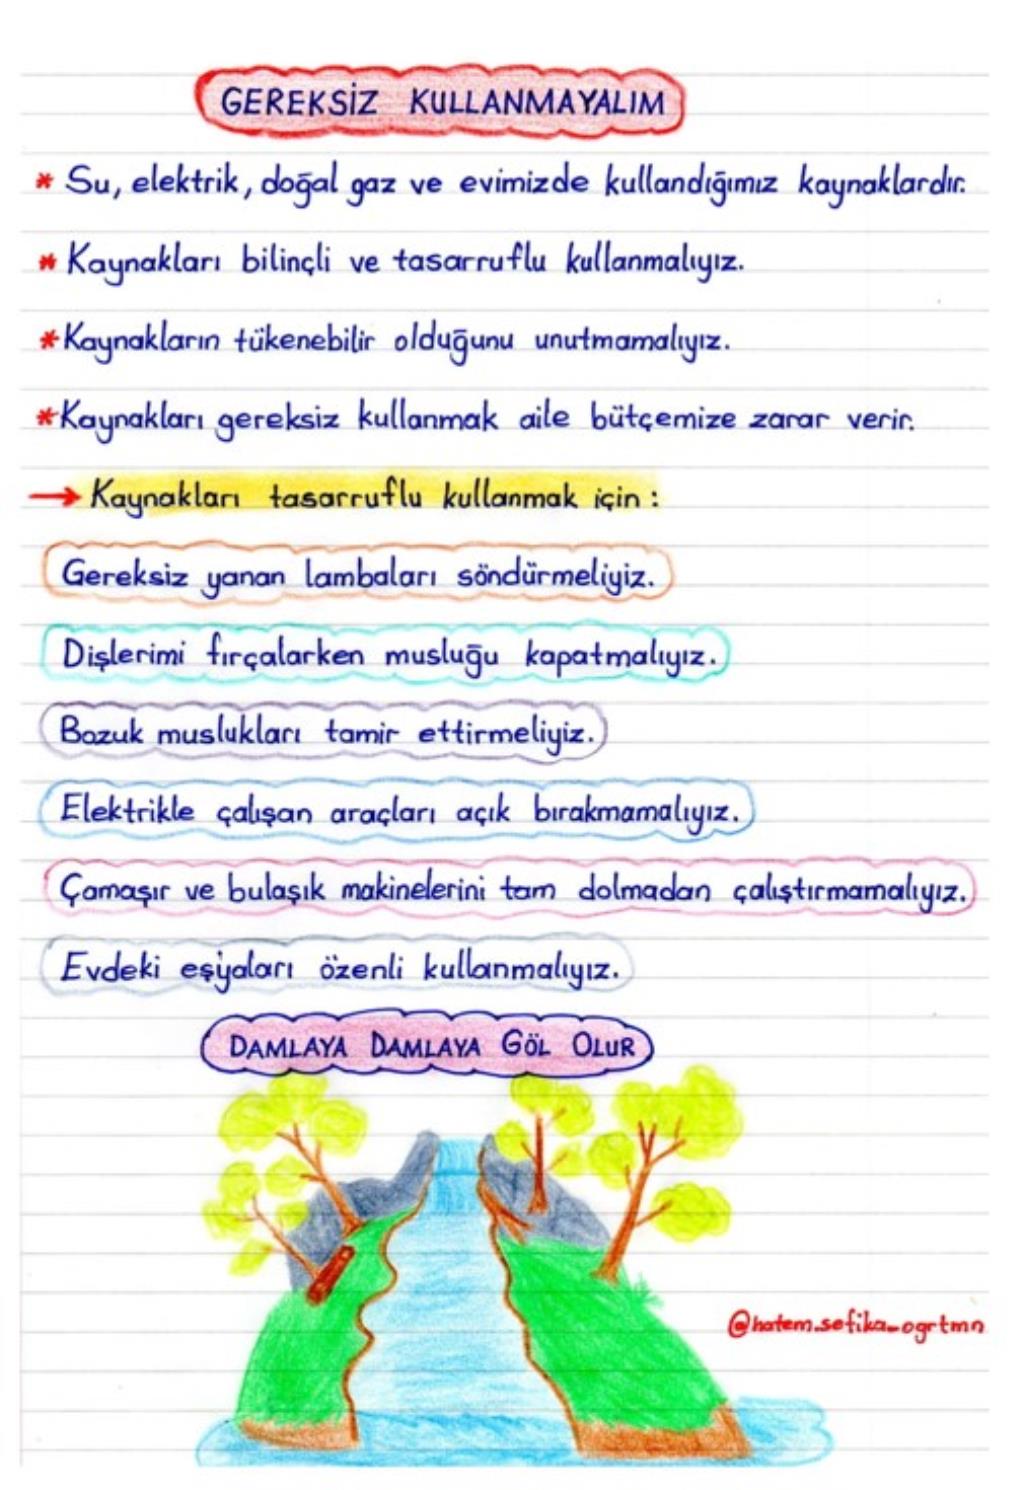 GEREKSİZ KULLANMAYALIM
* Su, elektrik, doğal gaz ve evimizde kullandığımız kaynaklardır.
* Kaynakları bilinçli ve tasarruflu kullanmalıyız.
* Kaynakların tükenebilir olduğunu unutmamalıyız.
* Kaynakları gereksiz kullanmak aile bütçemize zarar verir.
→ Kaynakları tasarruflu kullanmak için :
Gereksiz yanan lambaları söndürmeliyiz.
Dişlerimi fırçalarken musluğu kapatmalıyız.
Bozuk muslukları tamir ettirmeliyiz.
Elektrikle çalışan araçları açık bırakmamalıyız.
Çamaşır ve bulaşık makinelerini tam dolmadan çalıştırmamalıyız.
Evdeki eşyaları özenli kullanmalıyız.
DAMLAYA DAMLAYA GÖL OLUR
@hatem.sefika_ogrtmn